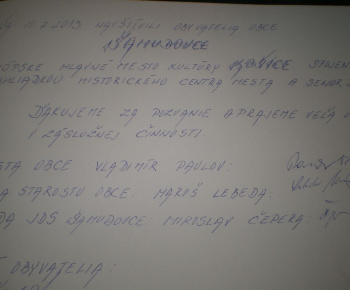 11.7.2013 NAVŠTÍVILI OBYVATELIA OBCE
ŠAMUDOVCE
HLAVNÉ MESTO KULTÚRY KOŠICE SPOJEN
HLIADKOU HISTORICKÉHO CENTRA MESTA A SENIOR
ĎAKUJEME ZA POZVANIE A PRAJEME VEĽA
ZÁSLUŽNEJ ČINNOSTI
STA OBCE VLADIMÍR PAULOV:
A STAROSTU OBCE: MAROŠ LEBEDA:
DA JDS ŠAMUDOVCE: MIROSLAV ČEPERA:
OBYVATELIA: